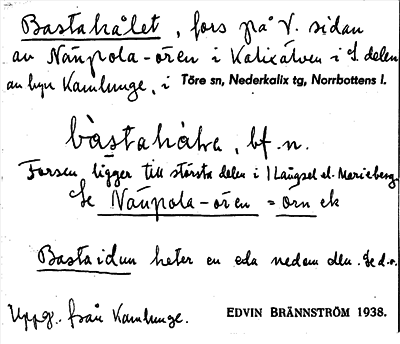 Bastahålet, fors på V. sidan
av Nänpola-ören i Kalixälven i S. delen
av byn Kamlunge, i Töre sn, Nederkalix tg, Norrbottens l.
bàstahåhɐ, bf. n.
Forsen ligger till största delen i Långsel el. Marieberg.
Se Nänpola-ören = örn ek
Bastaidun heter en eda nedom den. Se d.o.
Uppg. från Kamlunge.
EDVIN BRÄNNSTRÖM 1938.